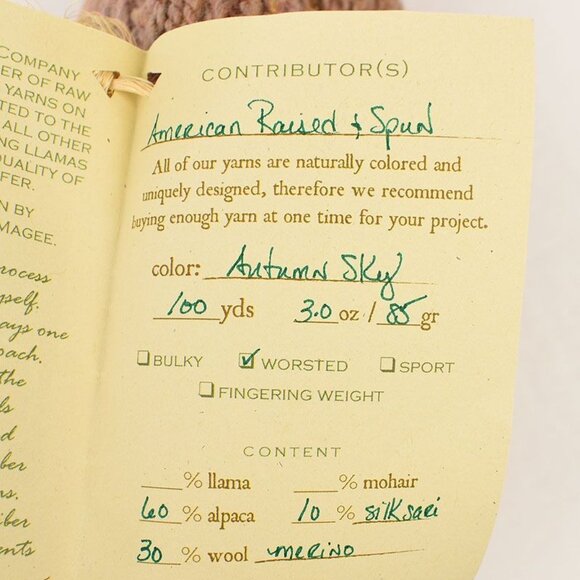 COMPANY
ER OF RAW
YARNS ON
TED TO THE
ALL OTHER
NG LLAMAS
QUALITY OF
FER.
N BY
MAGEE.
rocess
yself.
ays one
oach.
the
ls
d
ber
ns.
iber
ents
CONTRIBUTOR(S)
American Raised & Spun
All of our yarns are naturally colored and
uniquely designed, therefore we recommend
buying enough yarn at one time for your project.
color: Autumn Sky
100 yds 3.0 oz / 85 gr
BULKY WORSTED SPORT
FINGERING WEIGHT
CONTENT
% llama % mohair
60 % alpaca 10 % silk sari
30 % wool merino